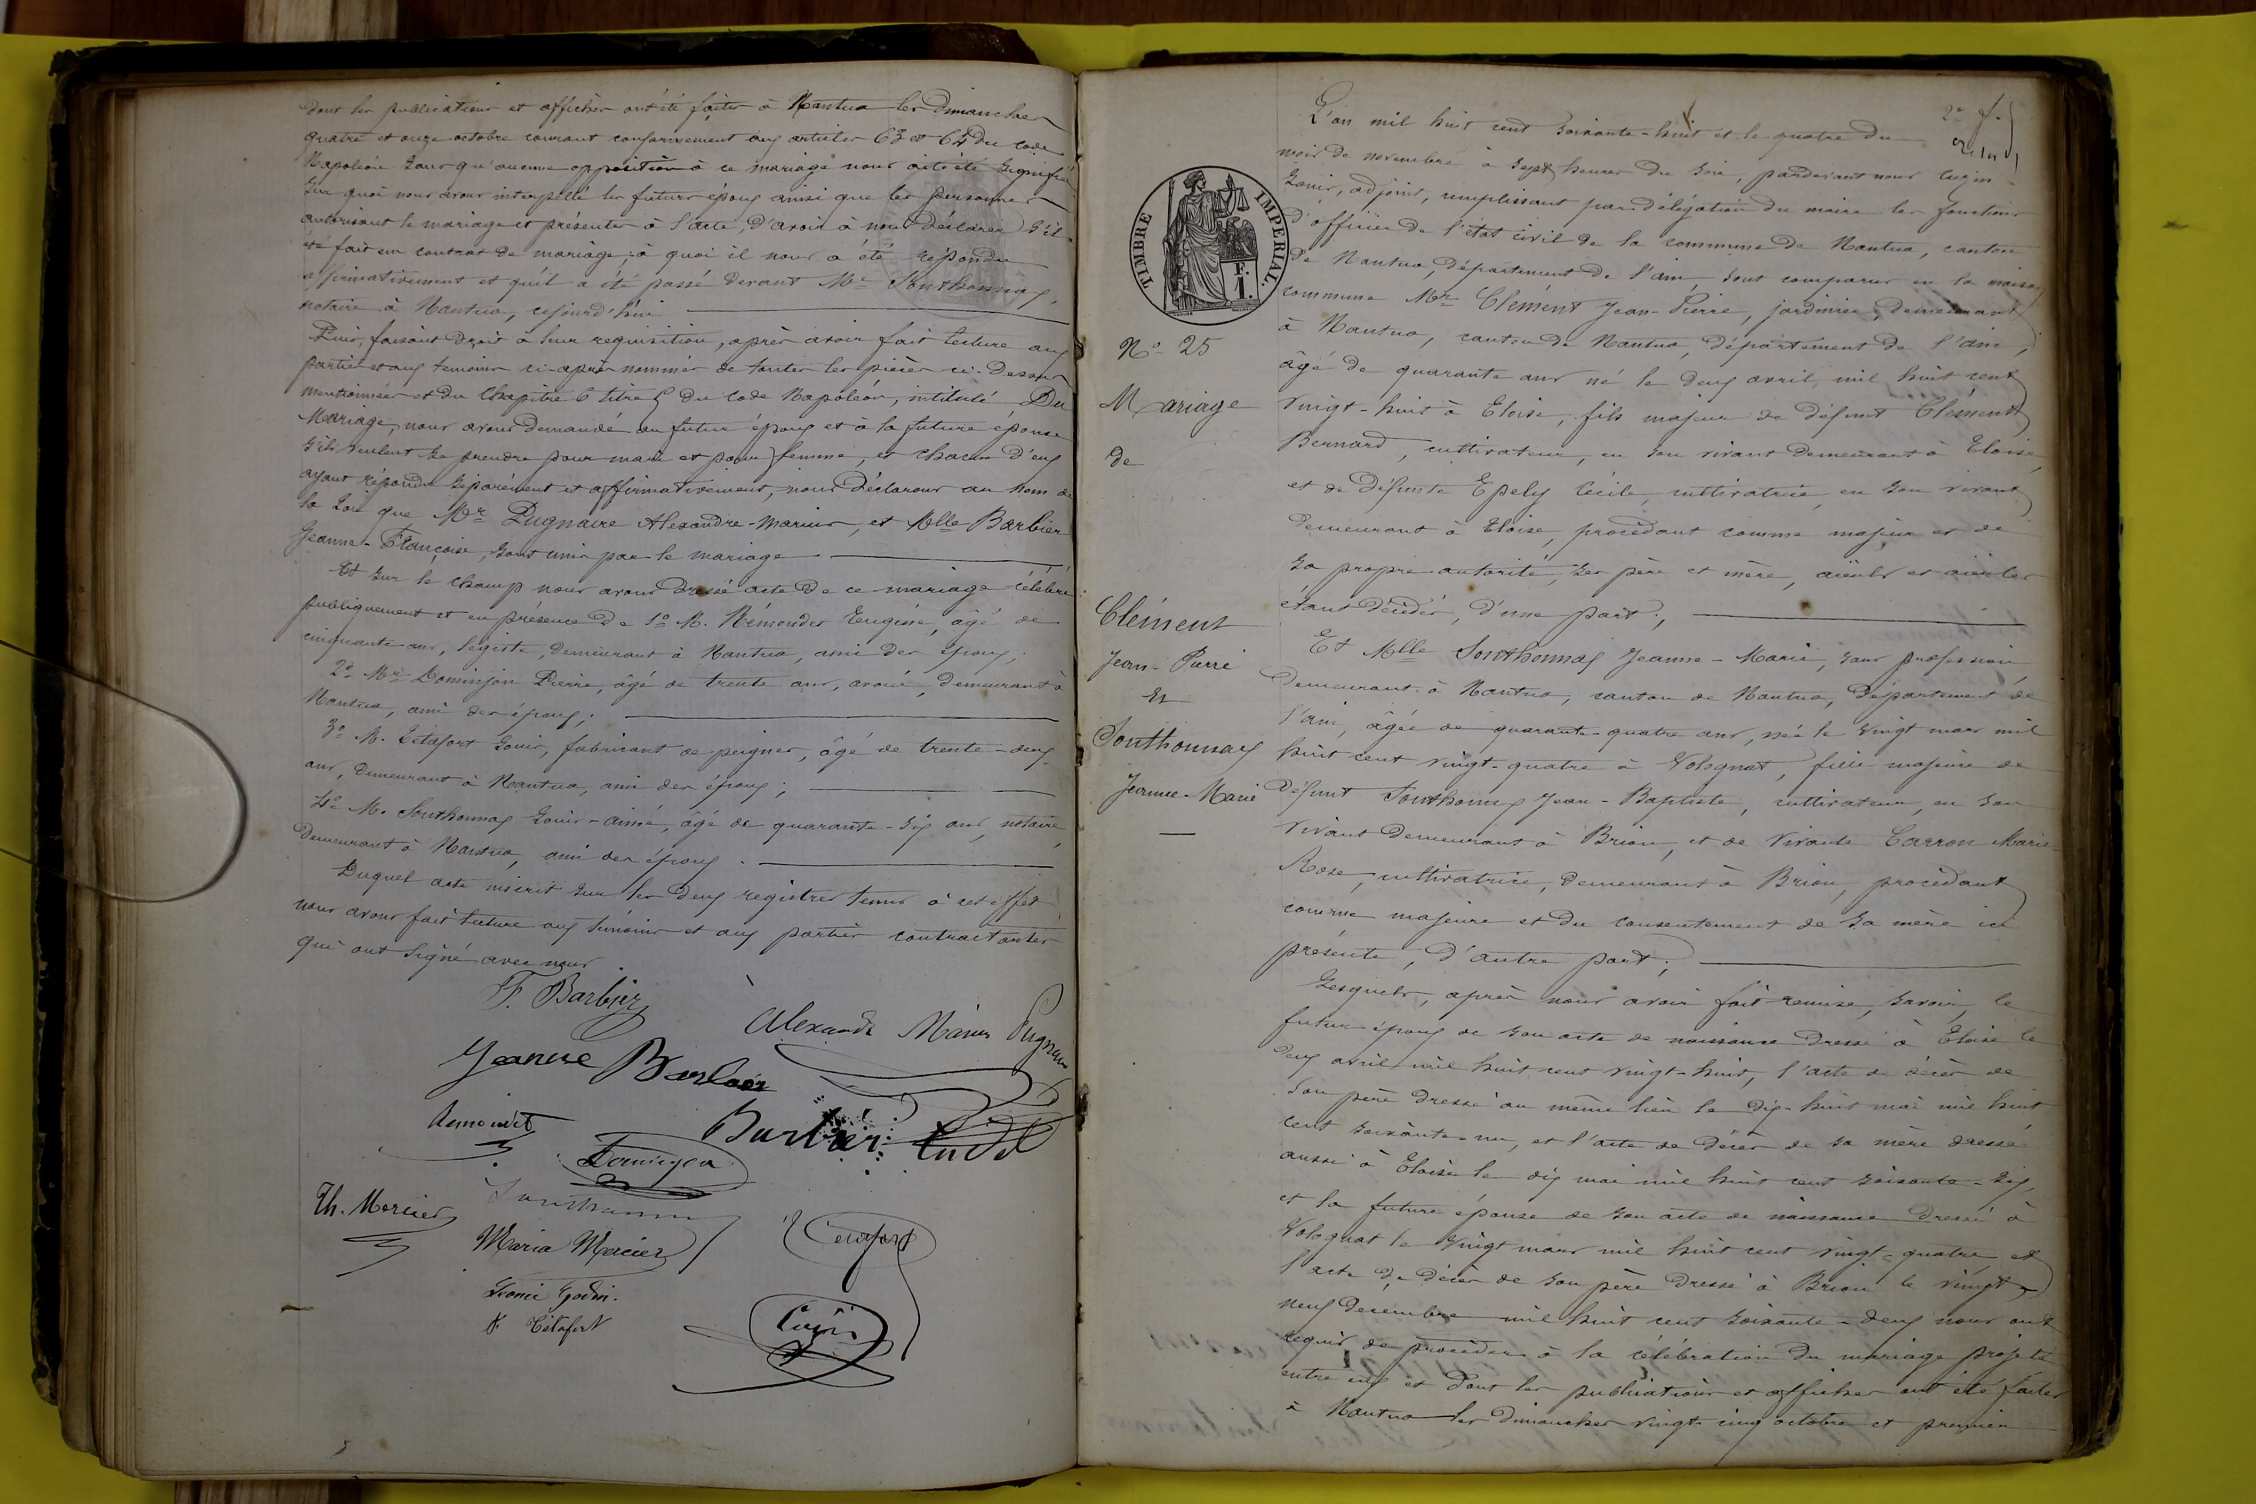 dont les publications et affiches ont été faites à Nantua les dimanches
quatre et onze octobre courant conformément aux articles 63 et 64 du code
Napoléon sans qu'aucune opposition à ce mariage nous ait été signifiée
Sur quoi nous avons interpellé les futurs époux ainsi que les personnes
autorisant le mariage et présentes à l'acte, d'avoir à nous déclarer s'il
été fait un contrat de mariage, à quoi il nous a été répondu
affirmativement et qu'il a été passé devant Me Sonthonnax,
notaire à Nantua, cejourd'hui
Puis, faisant droit à leur requisition, après avoir fait lecture aux
parties et aux témoins ci-après nommés de toutes les pièces ci-dessus
mentionnées et du Chapitre 6 titre 5 du code Napoléon, intitulé Du
Mariage, nous avons demandé au futur époux et à la future épouse
s'ils veulent se prendre pour mari et pour femme, et chacun d'eux
ayant répondu séparément et affirmativement, nous déclarons au nom de
la Loi que Mr Pugnaire Alexandre-Marius, et Melle Barbier
Jeanne-Françoise, sont unis par le mariage
Et sur le champ nous avons dressé acte de ce mariage célébré
publiquement et en présence de 1° M. Rémondet Eugène, âgé de
cinquante ans, légiste, demeurant à Nantua, ami des époux;
2° Mr Dominjon Pierre, âgé de trente ans, avoué, demeurant à
Nantua, ami des époux;
3° M. Tétafort Louis, fabricant de peignes, âgé de trente-deux
ans, demeurant à Nantua, ami des époux;
4° M. Sonthonnax Louis-aimé, âgé de quarante-six ans, notaire,
demeurant à Nantua, ami des époux.
Duquel acte inscrit sur les deux registres tenus à cet effet
nous avons fait lecture aux témoins et aux parties contractantes
qui ont signé avec nous
F. Barbier
Alexandre Marius Pugnaire
Jeanne Barbier
Remondet
Barbier
Dominjon
Th. Mercier
Sonthonnax
Maria Mercier
Tétafort
Godin.
Tétafort
Cugin
2e f.
TIMBRE IMPERIAL.
F.
1.
N° 25
Mariage
de
Clément
Jean-Pierre
et
Sonthonnax
Jeanne-Marie
L'an mil huit cent soixante-huit et le quatre du
mois de novembre à sept heures du soir, pardevant nous Cugin
Louis, adjoint, remplissant par délégation du maire les fonctions
d'officier de l'état civil de la commune de Nantua, canton
de Nantua, département de l'ain, sont comparus en la maison
commune Mr Clément Jean-Pierre, jardinier, demeurant
à Nantua, canton de Nantua, département de l'ain,
âgé de quarante ans né le deux avril mil huit cent
vingt-huit à Eloise, fils majeur de défunt Clément
Bernard, cultivateur, en son vivant demeurant à Eloise,
et de défunte Epely Cécile, cultivatrice en son vivant
demeurant à Eloise, procédant comme majeur et de
sa propre autorité, ses père et mère, aïeuls et aïeules
étant décédés, d'une part,
Et Melle Sonthonnax Jeanne-Marie, sans profession
demeurant à Nantua, canton de Nantua, département de
l'ain, âgée de quarante-quatre ans, née le vingt mars mil
huit cent vingt-quatre à Volognat, fille majeure de
défunt Sonthonnax Jean-Baptiste, cultivateur, en son
vivant demeurant à Brion, et de vivante Carron Marie-
Rose, cultivatrice, demeurant à Brion, procédant
comme majeure et du consentement de sa mère ici
présente, d'autre part;
Lesquels, après nous avoir fait remise, savoir, le
futur époux de son acte de naissance dressé à Eloise le
deux avril mil huit cent vingt-huit, l'acte de décès de
son père dressé au même lieu le dix-huit mai mil huit
cent soixante-un, et l'acte de décès de sa mère dressé
aussi à Eloise le dix mai mil huit cent soixante-six,
et la future épouse de son acte de naissance dressé à
Volognat le vingt mars mil huit cent vingt-quatre et
l'acte de décès de son père dressé à Brion le vingt
neuf décembre mil huit cent soixante-deux nous ont
requis de procéder à la célébration du mariage projeté
entre eux et dont les publications et affiches ont été faites
à Nantua les dimanches vingt-cinq octobre et premier